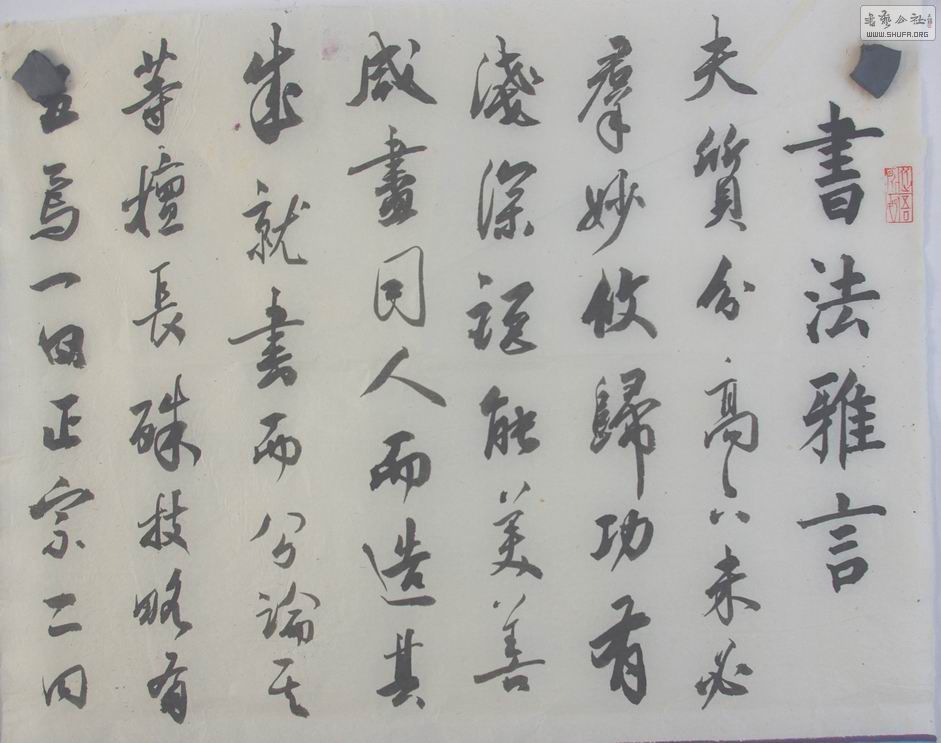 書法雅言
夫質分高下未必
羣妙攸歸功有
淺深詎能美善
咸盡因人而造其
成就書而分論其
等擅長殊技略有
五焉一曰正宗二曰
书艺公社
WWW.SHUFA.ORG